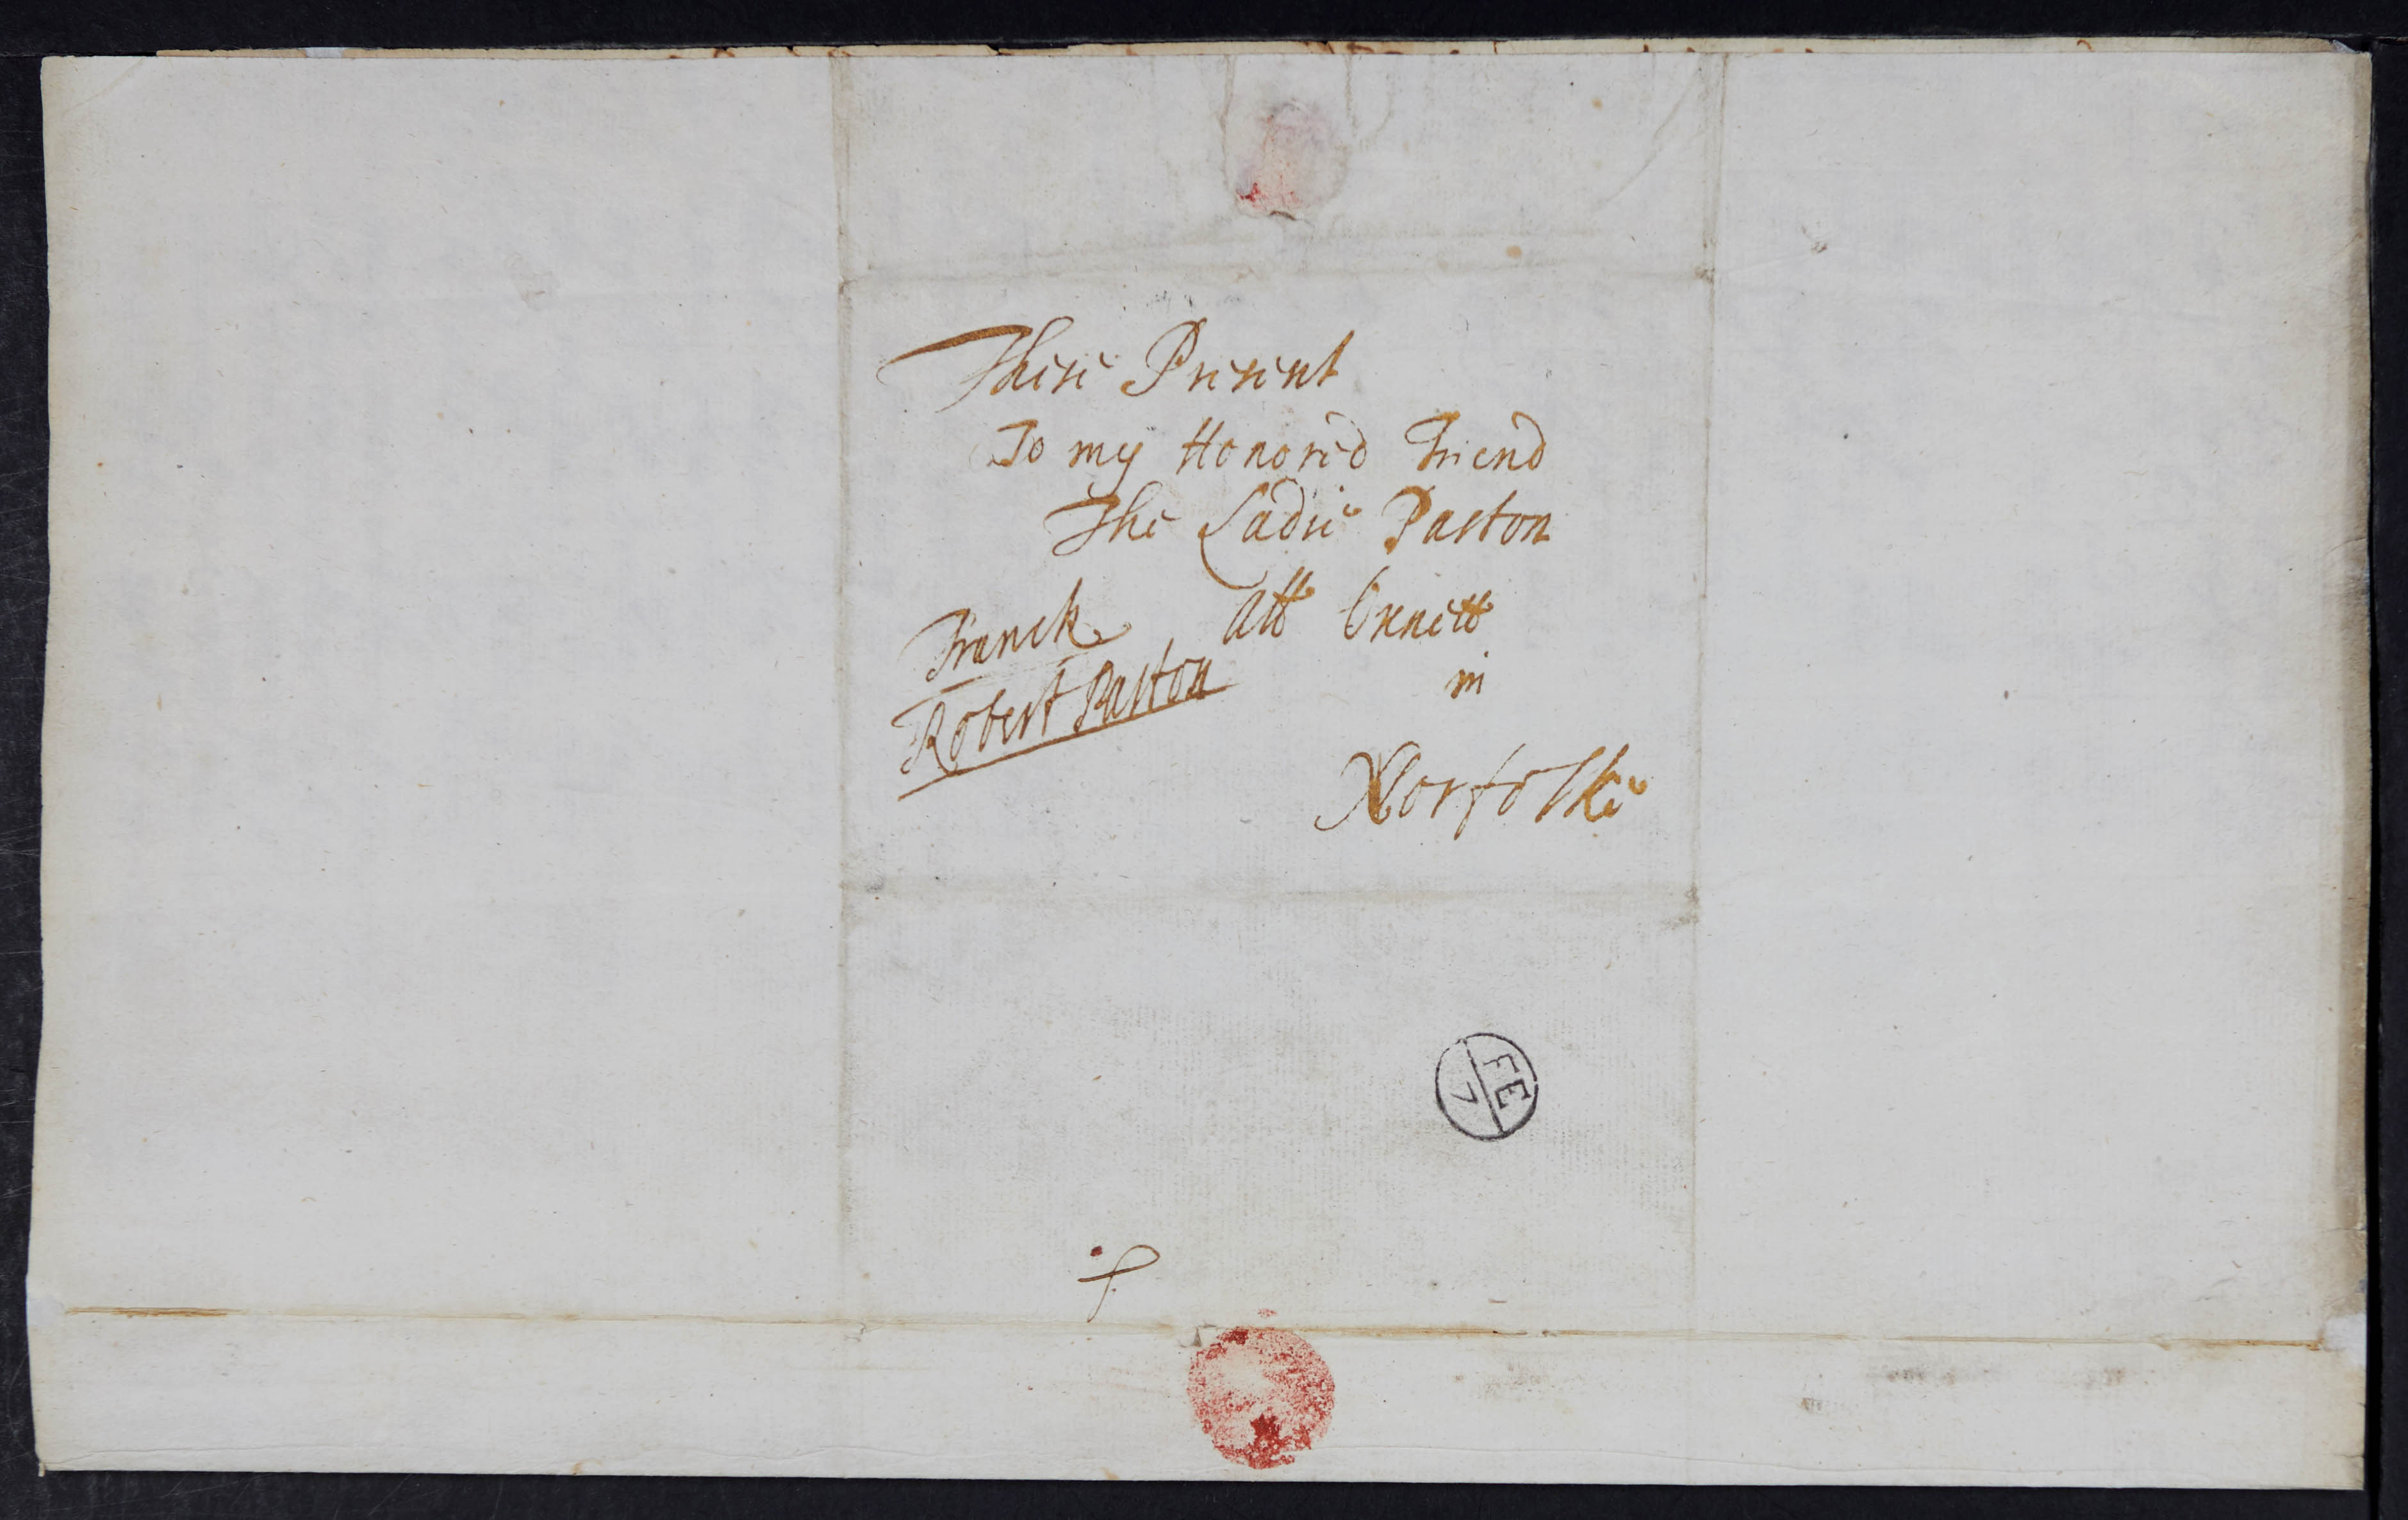 These Present
To my Honored Friend
The Ladie Paston
Att Oxnett
in
Norfolke
Franck
Robert Paston
FE
7